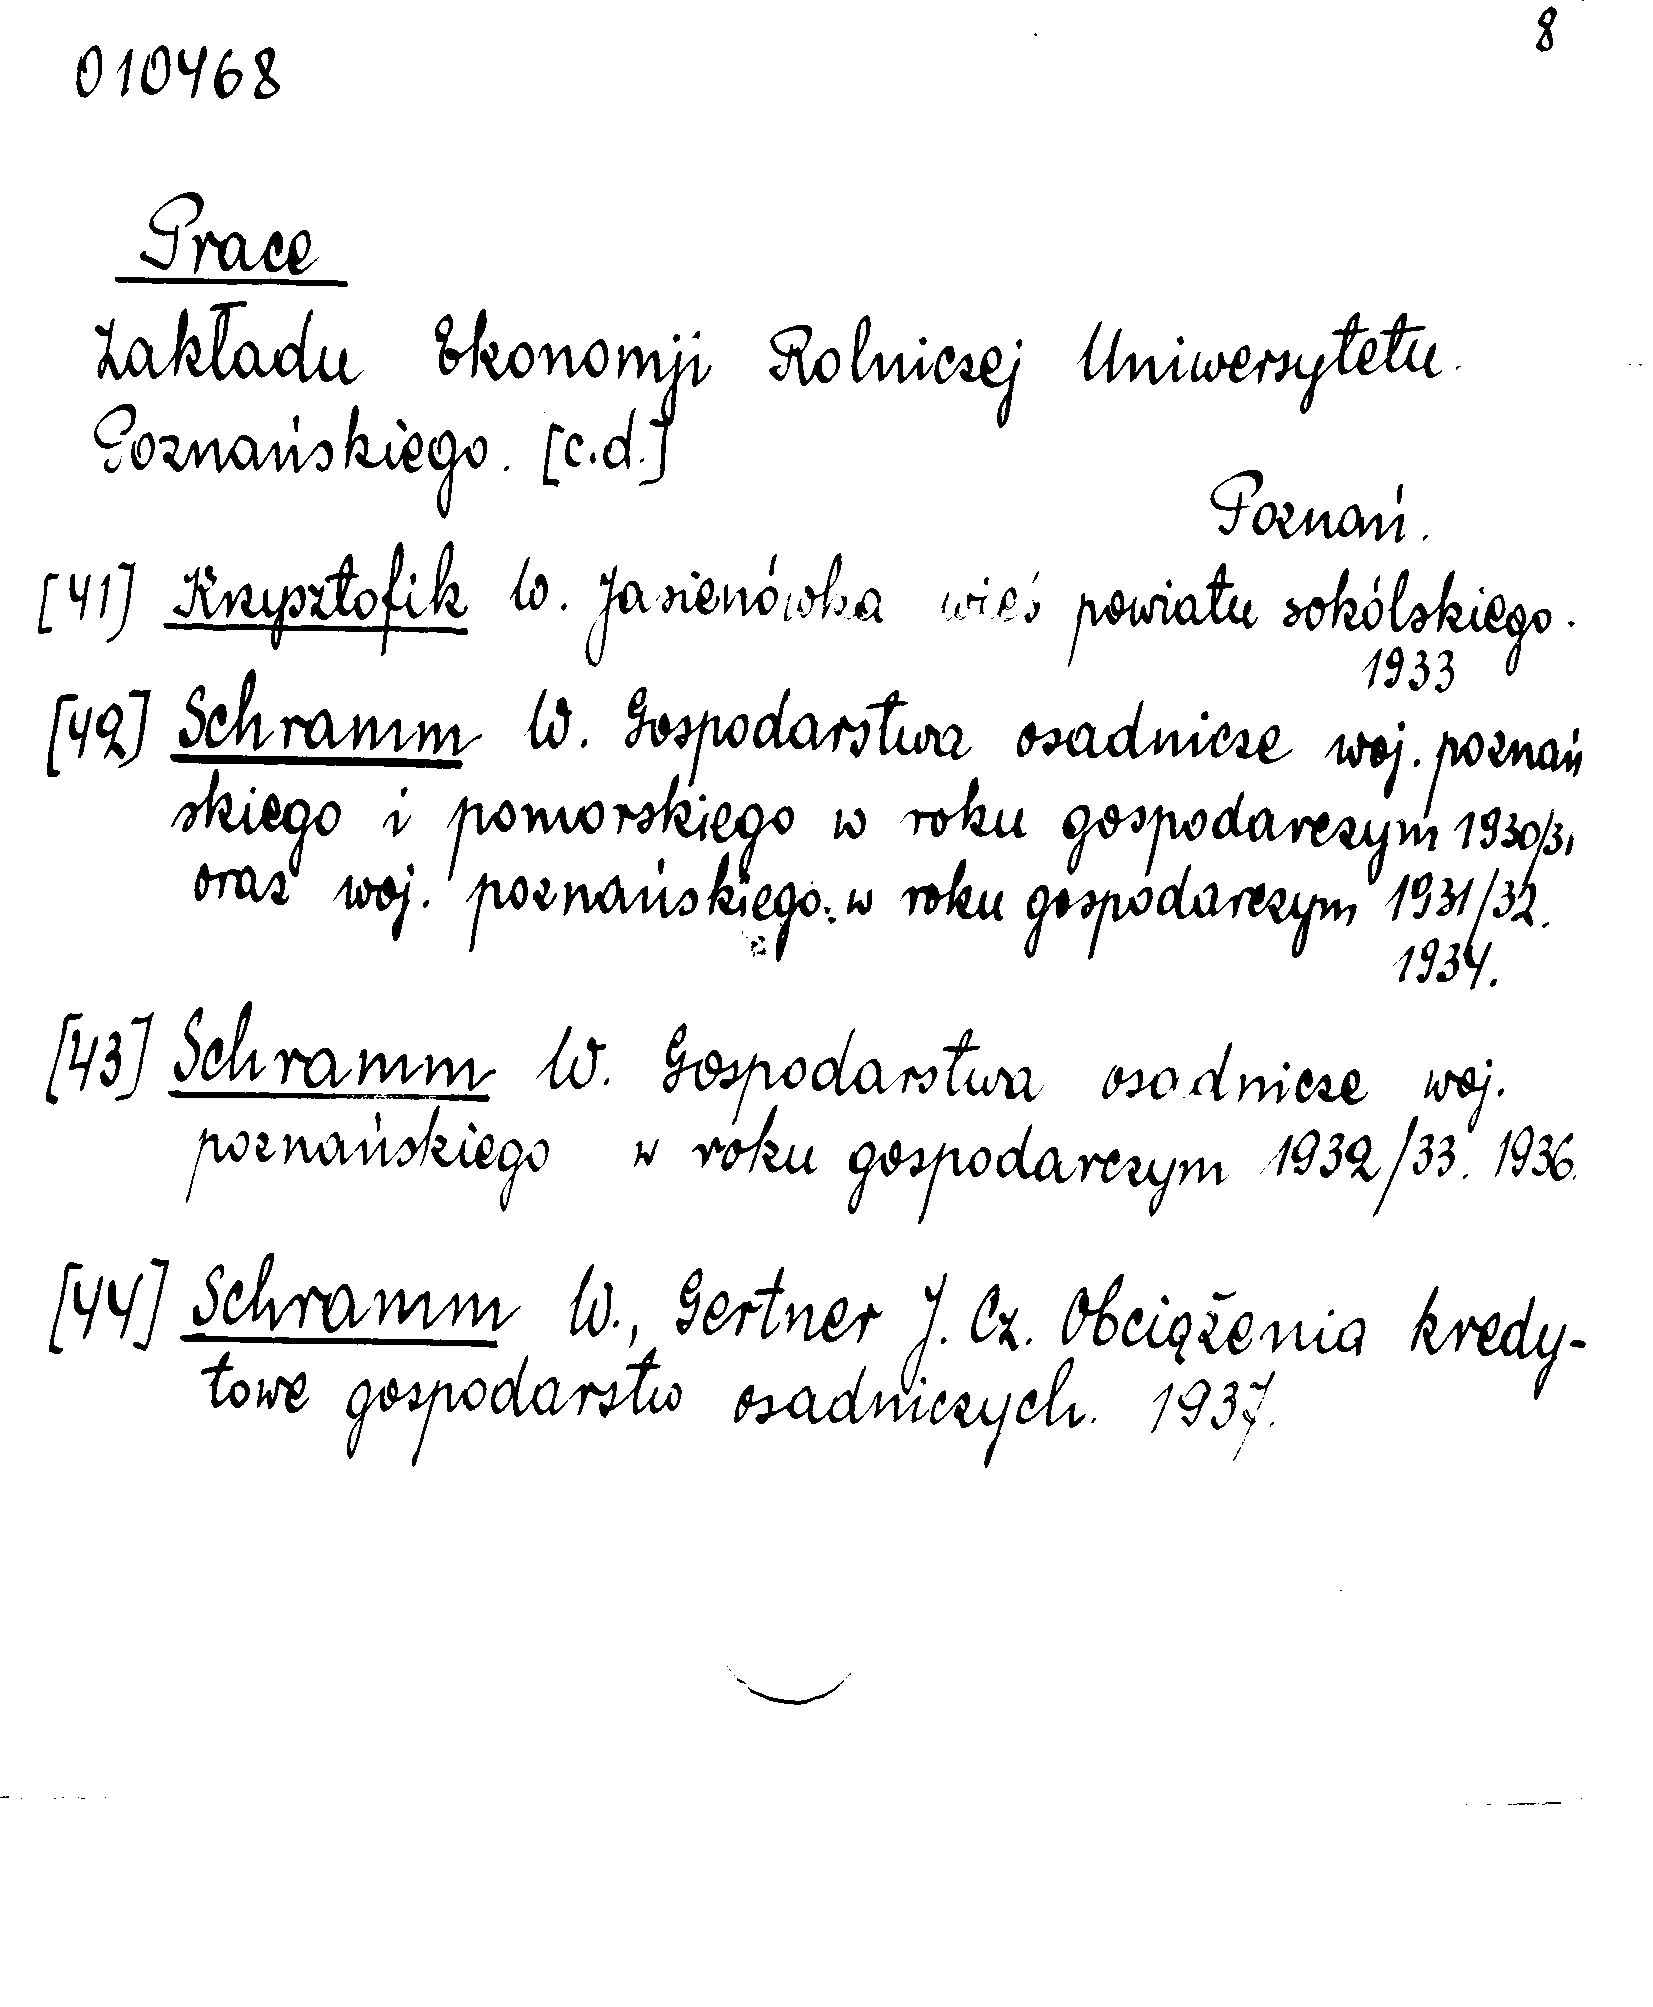 8
010468
Prace
Zakładu Ekonomji Rolniczej Uniwersytetu
Poznańskiego. [c.d.]
Poznań.
[41] Krzysztofik W. Jasienówka wieś powiatu sokólskiego.
1933
[42] Schramm W. Gospodarstwa osadnicze woj. poznań
skiego i pomorskiego w roku gospodarczym 1930/31
oraz woj. poznańskiego w roku gospodarczym 1931/32.
1934.
[43] Schramm W. Gospodarstwa osadnicze woj.
poznańskiego w roku gospodarczym 1932/33. 1936.
[44] Schramm W., Gertner J. Cz. Obciążenia kredy-
towe gospodarstw osadniczych. 1937.